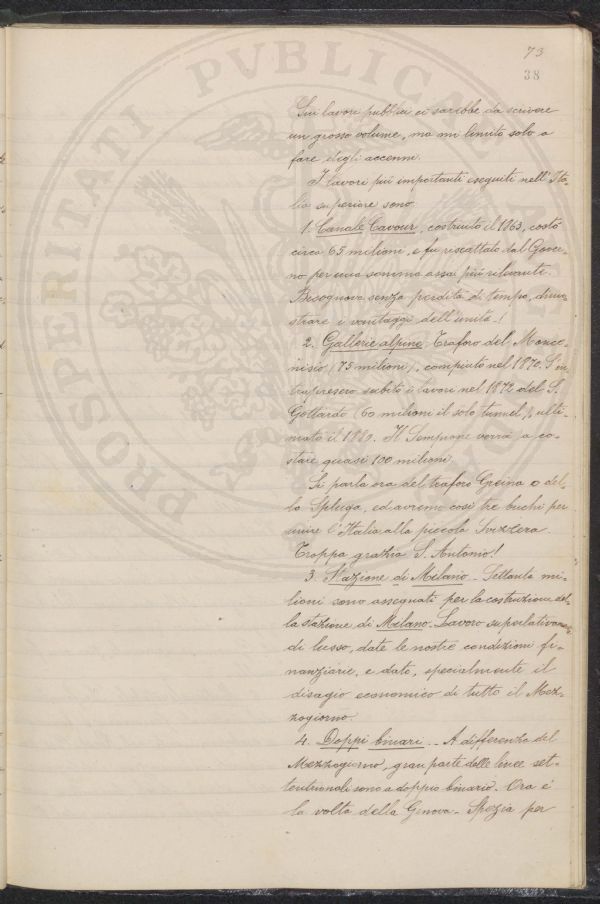 73
38
PROSPERITATI PVBLICAE
Sui lavori pubblici ci sarebbe da scrivere
un grosso volume, ma mi limito solo a
fare degli accenni.
I lavori più importanti eseguiti nell'Ita-
lia superiore sono:
1. Canale Cavour, costruito il 1863, costò
circa 65 milioni, e fu riscattato dal Gover-
no per una somma assai più rilevante.
Bisognava senza perdita di tempo, dimo-
strare i vantaggi dell'unità!
2. Gallerie alpine. Traforo del Monce-
nisio (75 milioni), compiuto nel 1870. S'in-
trapresero subito i lavori nel 1872 del S.
Gottardo (60 milioni il solo tunnel), ulti-
mato il 1880. Il Sempione verrà a co-
stare quasi 100 milioni.
Si parla ora del traforo Greina o del-
lo Spluga, ed avremo così tre buchi per
unire l'Italia alla piccola Svizzera.
Troppa grazia S. Antonio!
3. Stazione di Milano - Settanta mi-
lioni sono assegnati per la costruzione del-
la stazione di Milano. Lavoro superlativamente
di lusso, date le nostre condizioni fi-
nanziarie, e dato, specialmente il
disagio economico di tutto il Mez-
zogiorno.
4. Doppi binari. - A differenza del
Mezzogiorno, gran parte delle linee set-
tentrionali sono a doppio binario. Ora è
la volta della Genova-Spezia per